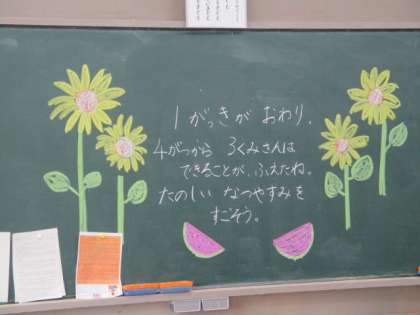 1がっきが おわり、
4がつから 3くみさんは
できることが、ふえたね。
たのしい なつやすみを
すごそう。